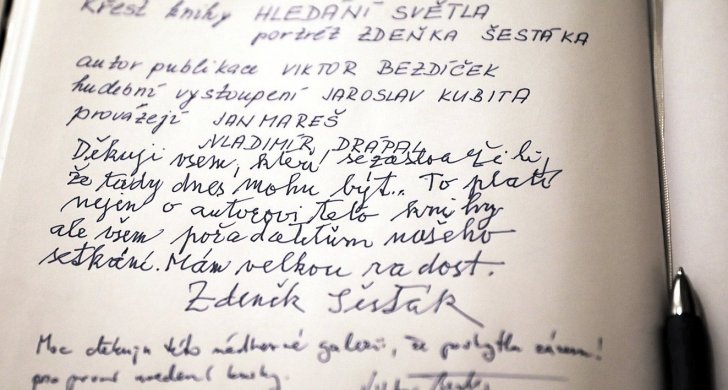 křest knihy HLEDÁNÍ SVĚTLA
portrét ZDEŇKA ŠESTÁKA
autor publikace VIKTOR BEZDÍČEK
hudební vystoupení JAROSLAV KUBITA
provázejí JAN MAREŠ
VLADIMÍR DRÁPAL
Děkuji všem, kteří se zasloužili,
že tady dnes mohu být... To platí
nejen o autorovi této knihy
ale všem pořadatelům našeho
setkání. Mám velkou radost.
Zdeněk Šesták
Moc děkuji této nádherné galerii, že poskytla zázemí
pro první uvedení knihy.